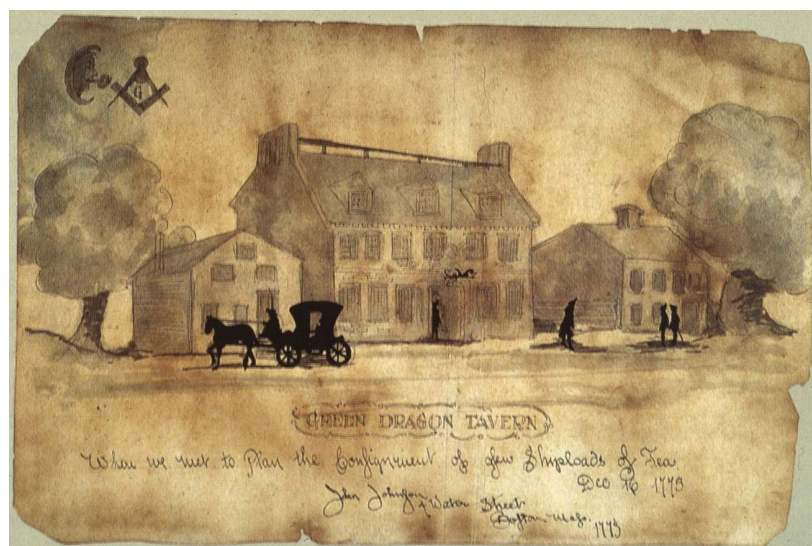 G
GREEN DRAGON TAVERN
Where we met to Plan the Consignment of few Shiploads of Tea
Dec 16 1773
John Johnson
4 Water Street
Boston Mass.
1773